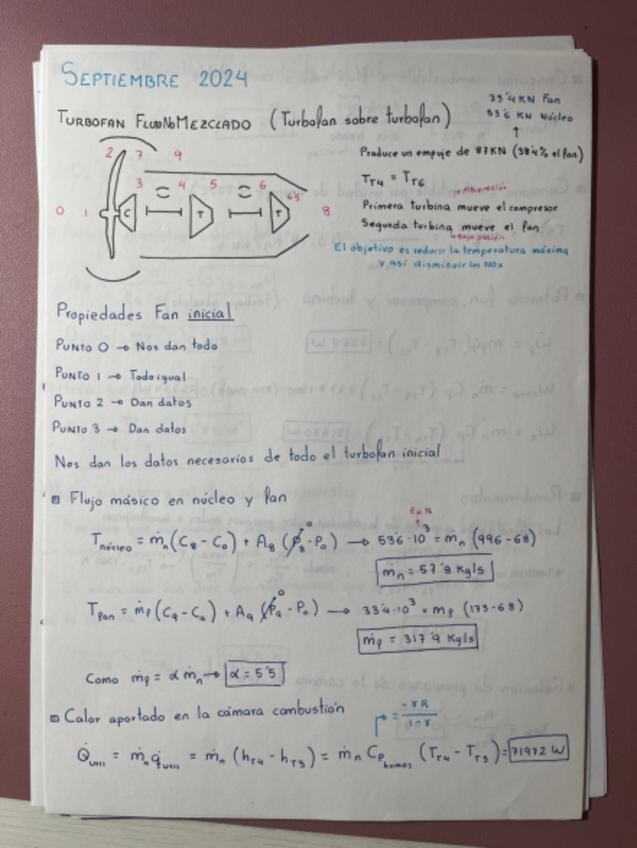 SEPTIEMBRE 2024
33'4 KN Fan
53'6 KN Núcleo
TURBOFAN FLUJO NO MEZCLADO (Turbofan sobre turbofan)
Produce un empuje de 87KN (38'4% el fan)
2 7 9
3 4 5 6 65
0 1 C T T 8
TT4 = TT6
Primera turbina mueve el compresor
Segunda turbina mueve el fan
baja presión
El objetivo es reducir la temperatura máxima
y así disminuir los NOx
Propiedades Fan inicial
PUNTO 0 → Nos dan todo
PUNTO 1 → Todo igual
PUNTO 2 → Dan datos
PUNTO 3 → Dan datos
Nos dan los datos necesarios de todo el turbofan inicial
Flujo másico en núcleo y fan
en N
Tnúcleo = ṁn (C8 - C0) + A8 (P8 - P0)⁰ → 53'6·10³ = mn (996-68)
mn = 57'8 Kg/s
Tfan = ṁf (C9 - C0) + A9 (P9 - P0)⁰ → 33'4·10³ = mf (173-68)
ṁf = 317'9 Kg/s
Como ṁf = α ṁn → α = 5'5
Calor aportado en la cámara combustión
= -γR / 1-γ
= ṁn (hT4 - hT3) = ṁn Cp humos (TT4 - TT3) = 71972 W